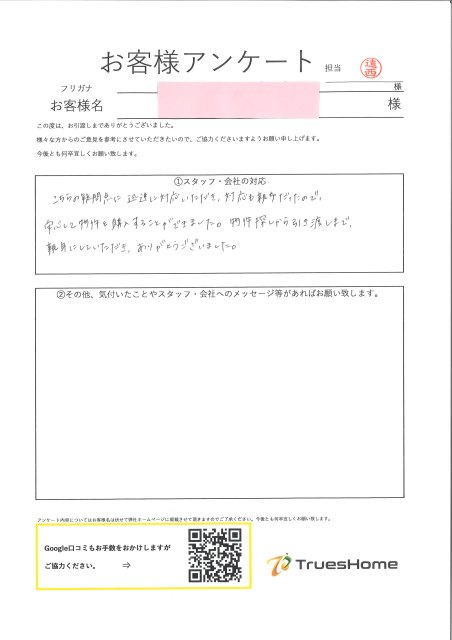 お客様アンケート
担当
遠西
フリガナ
様
お客様名
様
この度は、お引渡しまでありがとうございました。
様々な方からのご意見を参考にさせていただきたいので、ご協力くださいますようお願い申し上げます。
今後とも何卒宜しくお願い致します。
①スタッフ・会社の対応
こちらの疑問点に迅速に対応いただき、対応も親切だったので、
安心して物件を購入することができました。物件探しから引き渡しまで、
親身にしていただき、ありがとうございました。
②その他、気付いたことやスタッフ・会社へのメッセージ等があればお願い致します。
アンケート内容についてはお客様名は伏せて弊社ホームページに掲載させて頂きますのでご了承ください。今後とも何卒宜しくお願い致します。
Google口コミもお手数をおかけしますが
ご協力ください。 ⇒
TruesHome